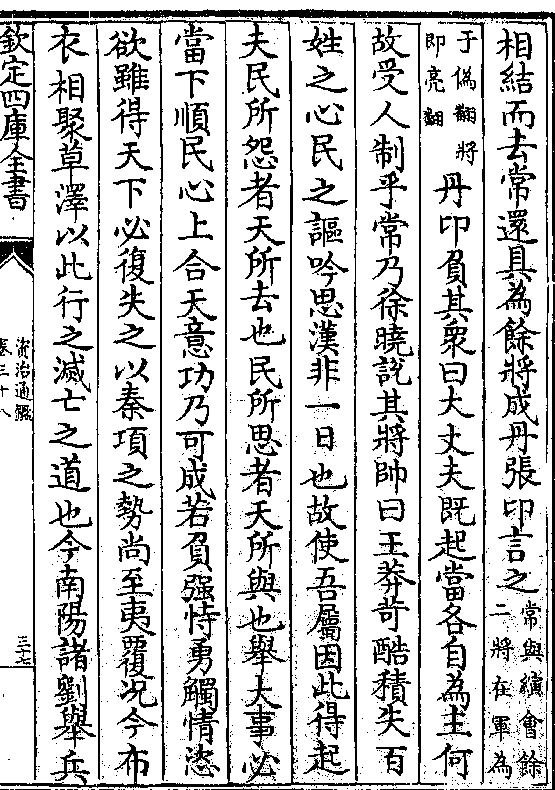 相結而去常還具為餘將成丹張卬言之常與縯會餘二將在軍為
于偽翻將即亮翻丹卬負其衆曰大丈夫既起當各自為主何
故受人制乎常乃徐曉説其將帥曰王莽苛酷積失百
姓之心民之謳吟思漢非一日也故使吾屬因此得起
夫民所怨者天所去也民所思者天所與也舉大事必
當下順民心上合天意功乃可成若負强恃勇觸情恣
欲雖得天下必復失之以秦項之勢尚至夷覆况今布
衣相聚草澤以此行之滅亡之道也今南陽諸劉舉兵
欽定四庫全書
資治通鑑
卷三十八
三十七